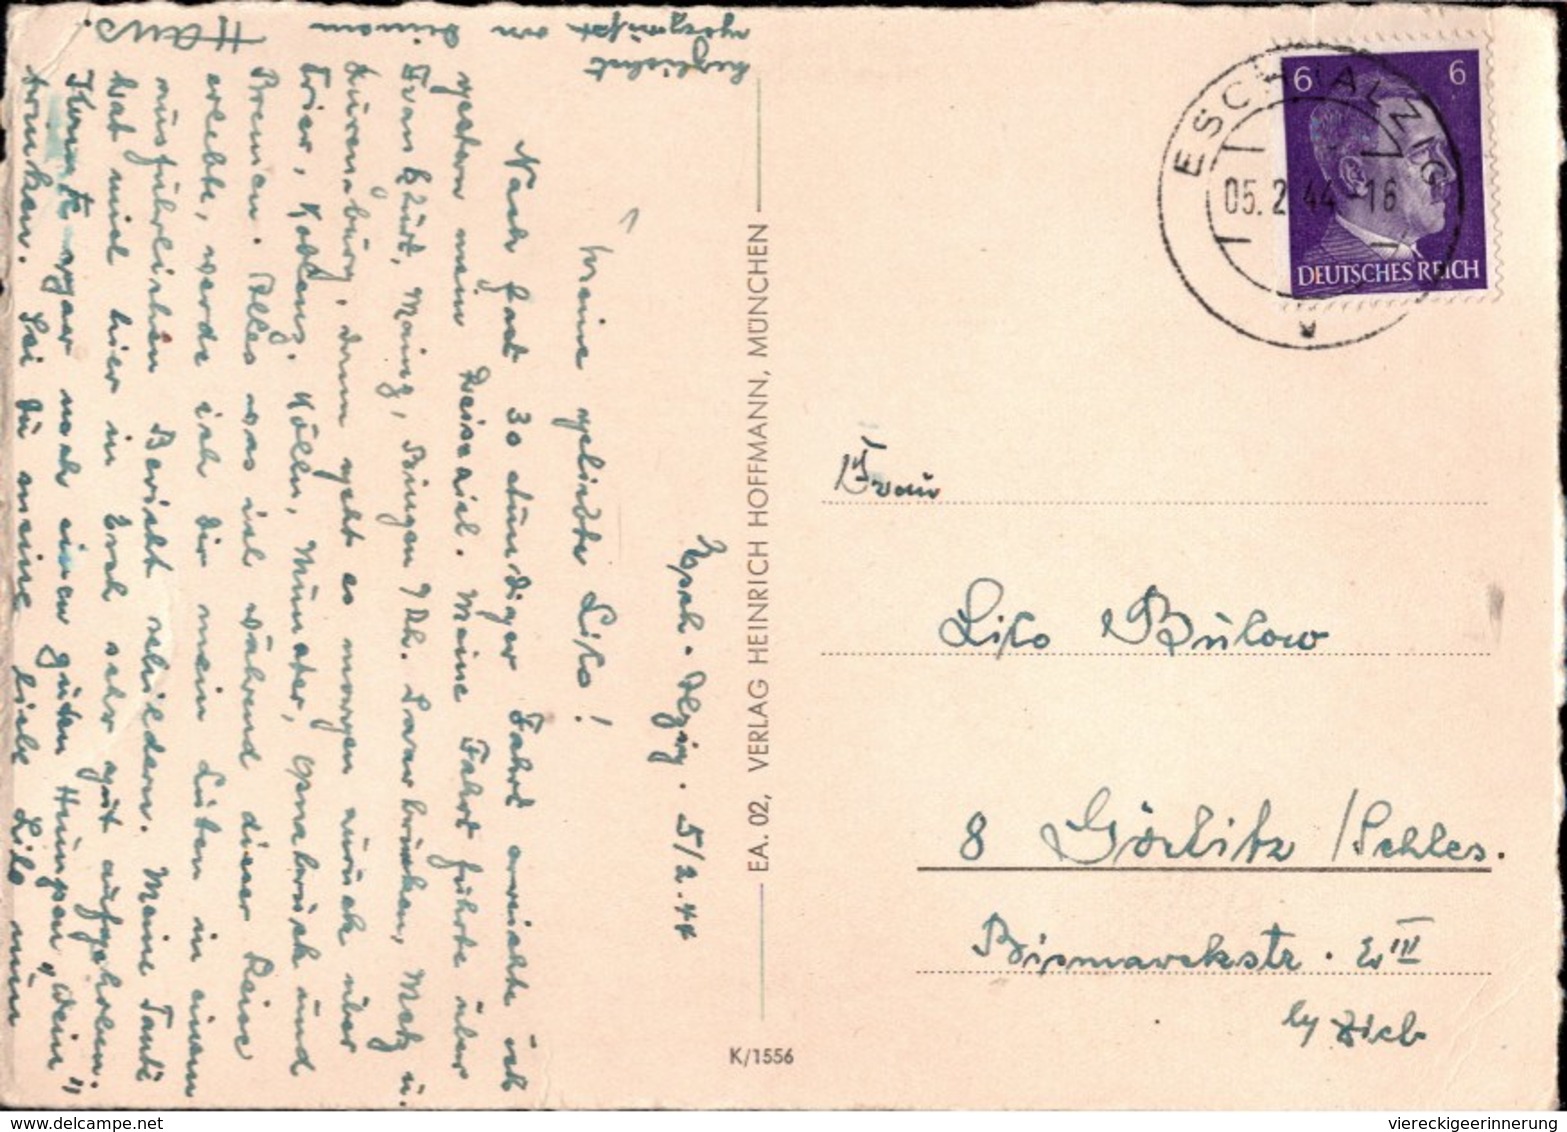 Esch-Alzig. 5/2.44
Meine geliebte Lilo!
Nach fast 30 stündiger Fahrt erreichte ich
gestern mein Reiseziel. Meine Fahrt führte über
Frankfurt, Mainz, Bingen Rh. Saarbrücken, Metz u.
Luxemburg, dann geht es morgen zurück über
Trier, Koblenz. Kölln, Münster, Osnabrück und
Bremen. Alles was ich während dieser Reise
erlebte, werde ich Dir mein Lieben in einem
ausführlichen Bericht schildern. Meine Tante
hat mich hier in Esch sehr gut aufgehoben.
Konnte sogar noch einen guten Humpen „Wein"
trinken. Sei Du meine liebe Lilo nun
herzlichst
gegrüßt von
Deinem
Hans.
EA. 02, VERLAG HEINRICH HOFFMANN, MÜNCHEN
K/1556
6 6
DEUTSCHES REICH
ESCH-ALZIG
05.2.44-16
Frau
Lilo Bülow
8 Görlitz/Schles.
Bismarckstr.
by
delcampe.net
viereckigeerinnerung